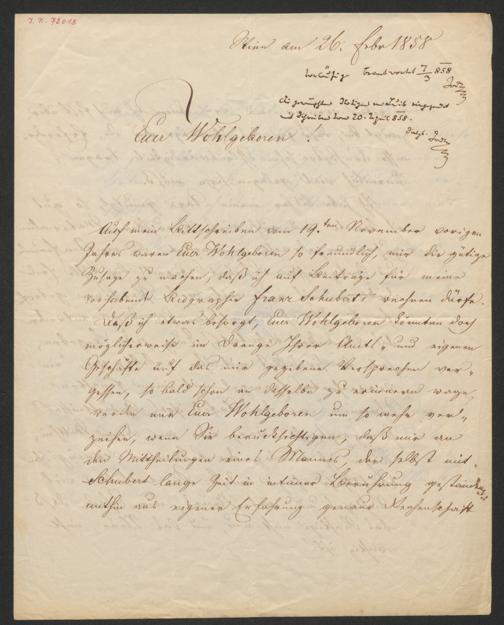 J. N. 72018
Wien am 26. Febr 1858
Vorläufig beantwortet 7/3 858
die gewünschten Notizen
mit Schreiben vom 20. April 858.
Euer Wohlgeboren!
Auf mein Bittschreiben vom 19.ten November vorigen
Jahres waren Euer Wohlgeboren so freundlich, mir die gütige
Zusage zu machen, daß ich auf Beiträge für meine
vorhabende Biographie Franz Schuberts rechnen dürfe.
Daß ich etwas besorgt, Euer Wohlgeboren könnten doch
möglicherweise im Drange Ihrer Amts- und eigenen
Geschäfte auf das mir gegebene Versprechen ver-
gessen, so bald schon an dasselbe zu erinnern wage,
werden mir Euer Wohlgeboren um so mehr ver-
zeihen, wenn Sie berücksichtigen, daß mir an
den Mittheilungen eines Mannes, der selbst mit
Schubert lange Zeit in intimer Berührung gestanden
mithin aus eigener Erfahrung genaue Rechenschaft